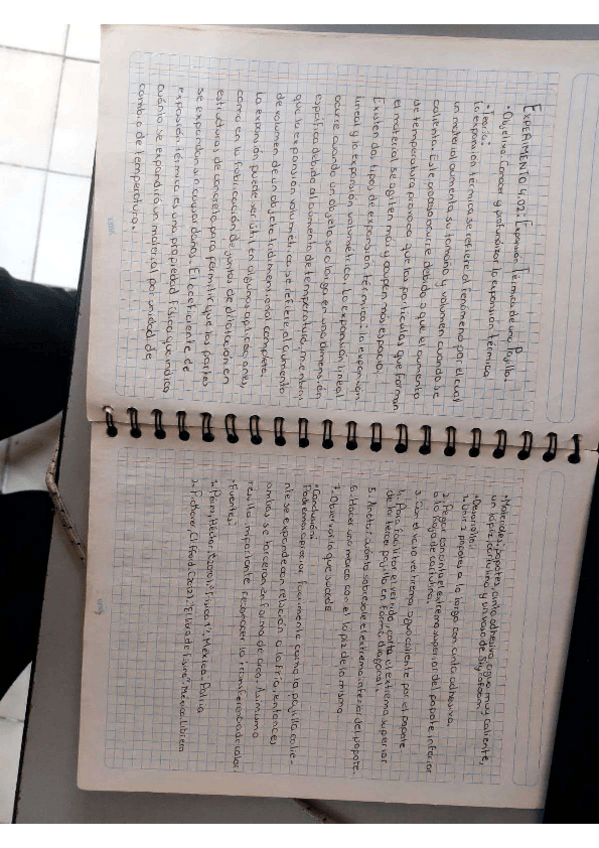 EXPERIMENTO 4.02: Expansión Térmica de una Pajilla.
• Objetivo: Conocer y profundizar la expansión térmica
• Teoría:
La expansión térmica se refiere al fenómeno por el cual
un material aumenta su tamaño y volumen cuando se
calienta. Este proceso ocurre debido a que el aumento
de temperatura provoca que las partículas que forman
el material se agiten más y ocupen más espacio.
Existen dos tipos de expansión térmica: la expansión
lineal y la expansión volumétrica. La expansión lineal
ocurre cuando un objeto se alarga en una dimensión
específica debido al aumento de temperatura, mientras
que la expansión volumétrica se refiere al aumento
de volumen de un objeto tridimensional completo.
La expansión puede ser útil en algunas aplicaciones,
como en la fabricación de juntas de dilatación en
estructuras de concreto para permitir que las partes
se expandan sin causar daños. El coeficiente de
expansión térmica es una propiedad física que indica
cuánto se expandirá un material por unidad de
cambio de temperatura.
• Materiales: popotes, cinta adhesiva, agua muy caliente,
un lápiz, cartulina y un vaso de
• Desarrollo:
1. Unir 2 popotes a lo largo con cinta adhesiva.
2. Pegar con cinta el extremo superior del popote inferior
a la hoja de cartulina.
3. Con el vaso vertirema agua caliente por el popote
4. Para facilitar el vertido, corta el extremo superior
de la tercer pajilla en forma diagonal.
5. Anota: cuánto sobresale el extremo inferior del popote.
6. Hacer una marca con el lápiz de la misma
7. Observar lo que sucede
• Conclusión:
Podremos apreciar fácilmente como la pajilla calie-
nte se expande con relación a la fría, entonces
ambas se torcerán en forma de arco. Asimismo
resulta importante reconocer la transferencia de calor
• Fuentes:
1. Pérez, Héctor. (2001). "Física 1". México - Patria
2. Pickover, Clifford. (2012). "El libro de Física". México: Librero